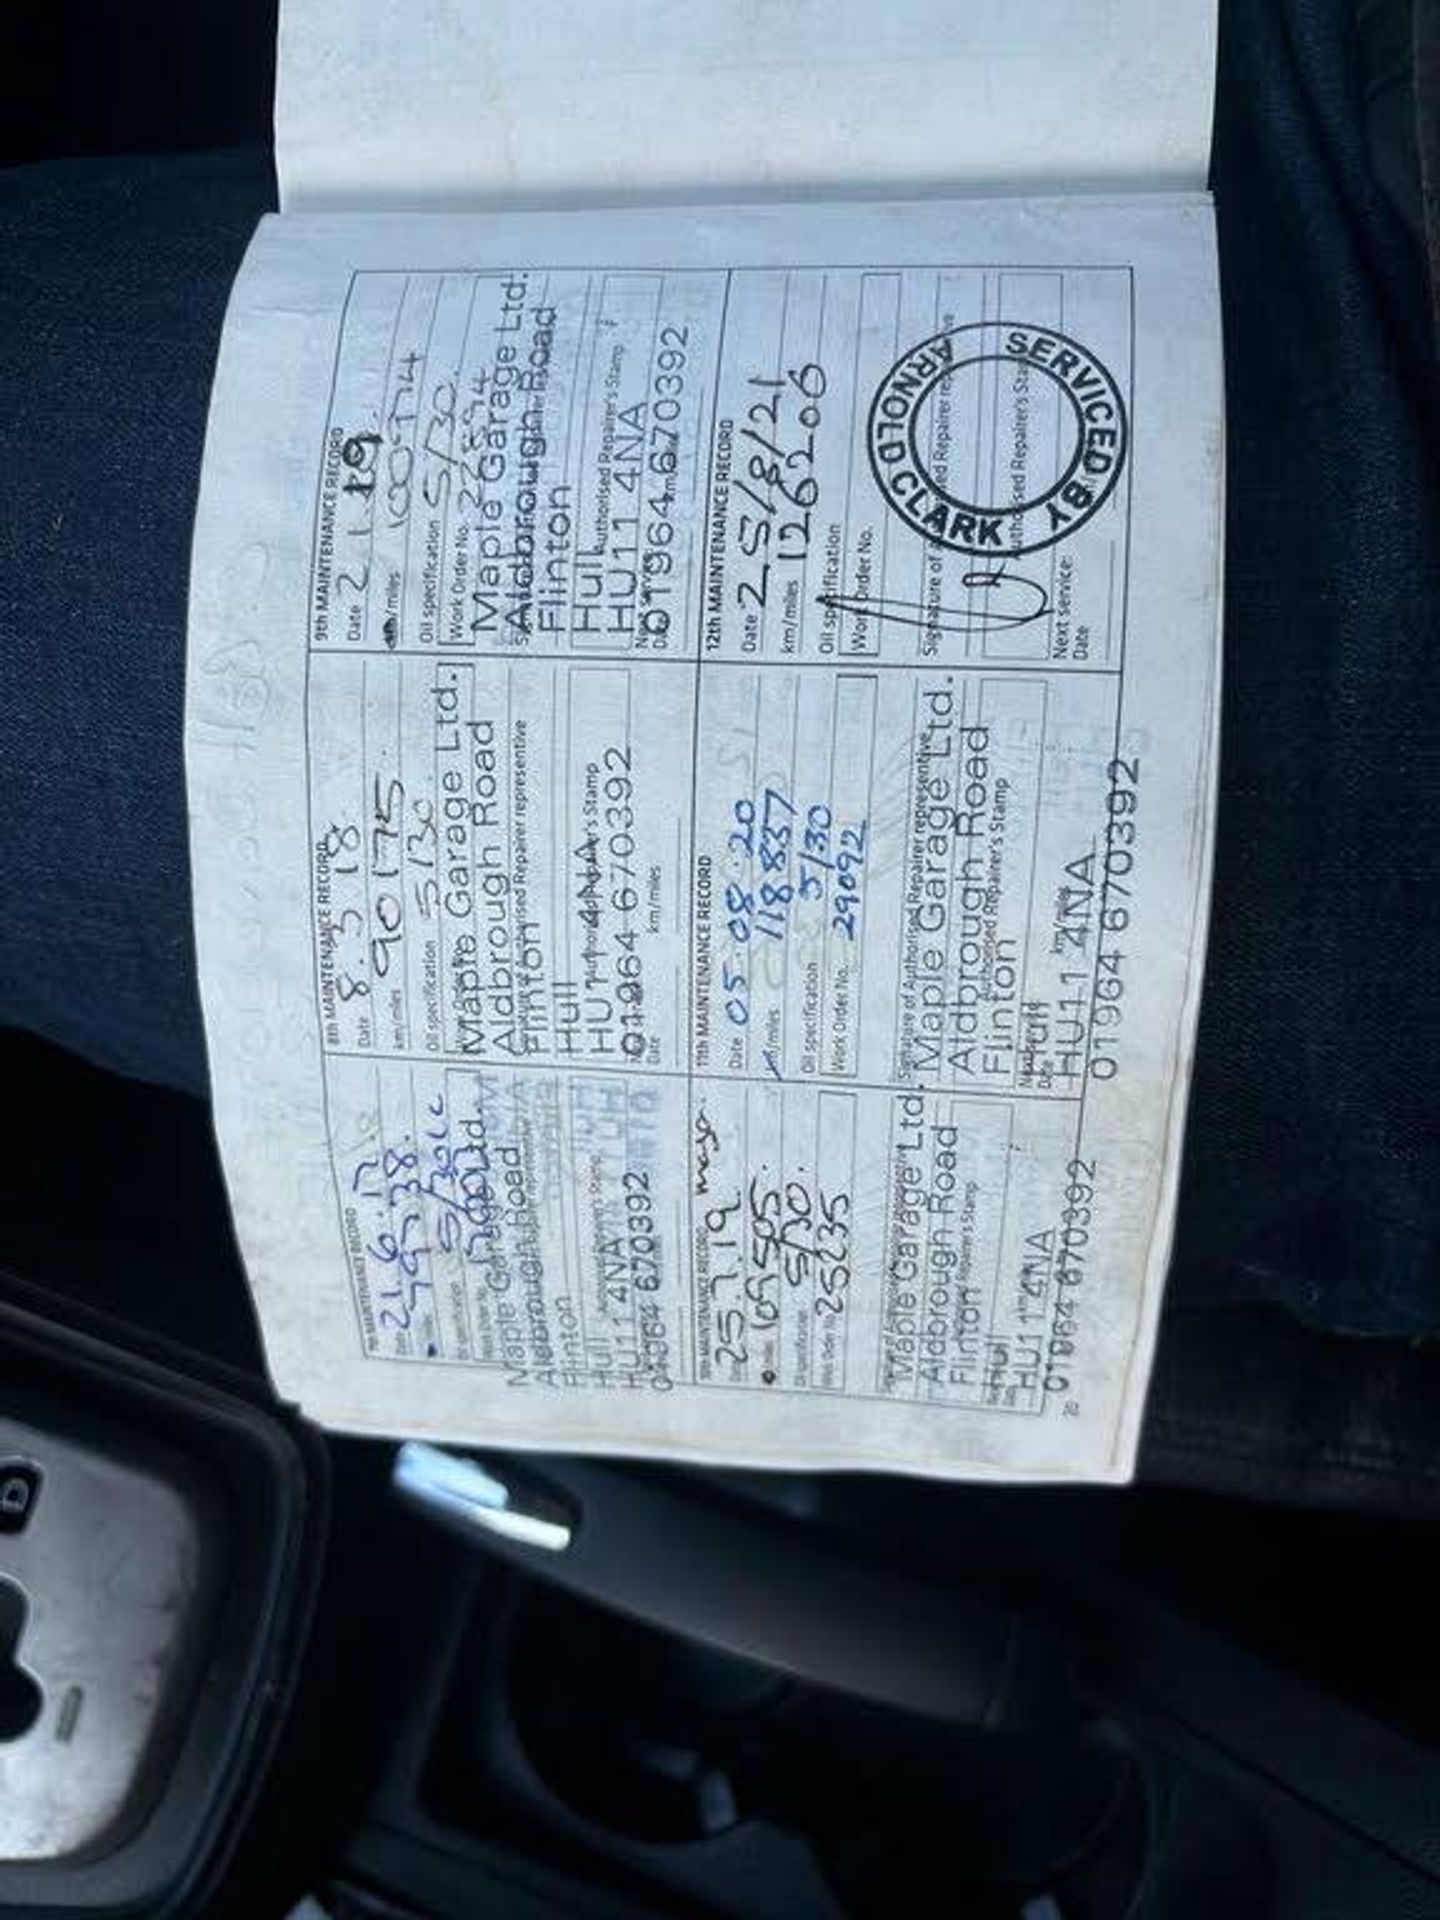 7th MAINTENANCE RECORD
Date 21.6.17
79738.
Oil specification 5/30LL
Maple Garage Ltd.
Aldbrough Road
Flinton
Hull
HU11 4NA
01964 670392
8th MAINTENANCE RECORD
Date 8.3.18
km/miles 90175
Oil specification 5/30
Maple Garage Ltd.
Aldbrough Road
Flinton
Hull
HU11 4NA
01964 670392
Date km/miles
9th MAINTENANCE RECORD
Date 2.1.19
km/miles
Oil specification 5/30
Work Order No.
Maple Garage Ltd.
Aldbrough Road
Flinton
Hull
Authorised Repairer's Stamp
HU11 4NA
01964 670392
10th MAINTENANCE RECORD major.
25.7.19
109505.
5/30.
Work Order No. 25235
Maple Garage Ltd.
Aldbrough Road
Flinton
Hull
HU11 4NA
01964 670392
20
11th MAINTENANCE RECORD
Date 05.08.20
km/miles 118837
Oil specification 5/30
Work Order No. 29092
Signature of Authorised Repairer representative
Maple Garage Ltd.
Aldbrough Road
Authorised Repairer's Stamp
Flinton
Hull
HU11 4NA
01964 670392
12th MAINTENANCE RECORD
Date 25/8/21
km/miles 126206
Oil specification
Work Order No.
Signature of Authorised Repairer representative
Authorised Repairer's Stamp
SERVICED BY
ARNOLD CLARK
Next service:
Date
D